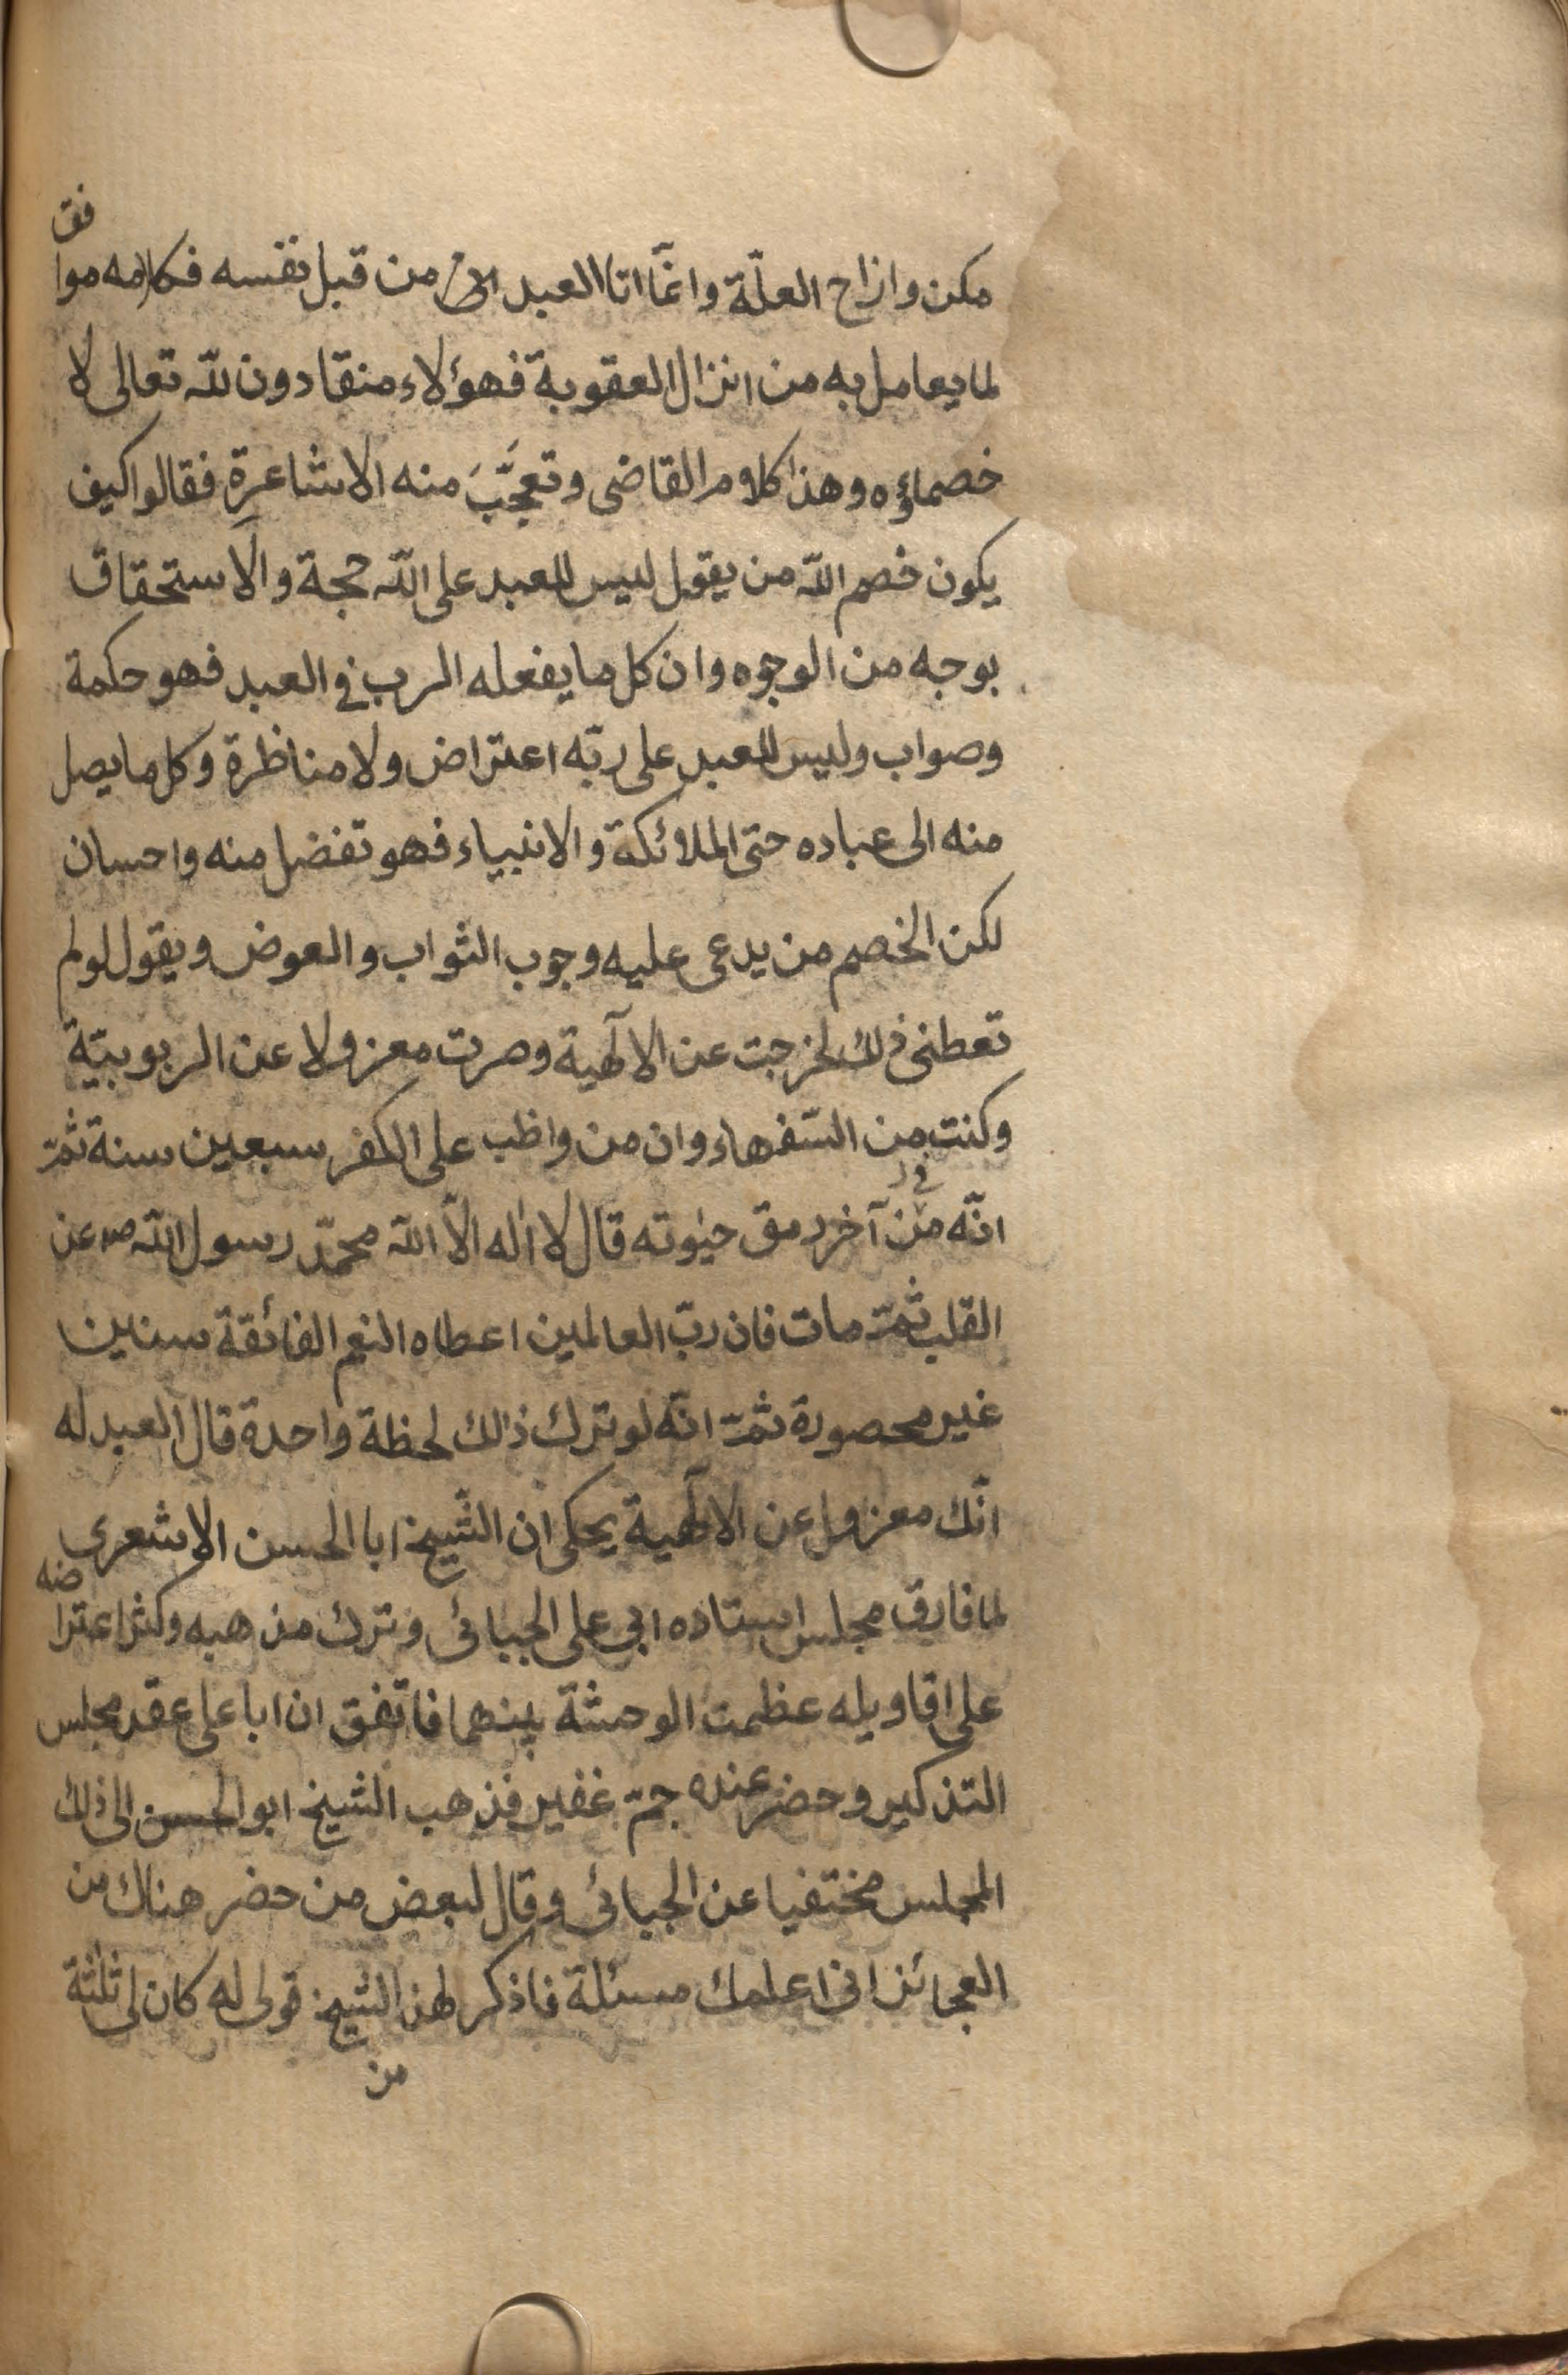 مكن وازاح العلّة وانمّا اتا العبد الاثم من قبل نفسه فكلامه موافق
لما يعامل به من انزال العقوبة فهؤلاء منقادون للّه تعالى لا
خصماؤه وهذا كلام القاضى وتعجَّبَ منه الاشاعرة فقالوا كيف
يكون خصم اللّه من يقول ليس للعبد على اللّه حجة والاستحقاق
بوجه من الوجوه وان كل ما يفعله الرب في العبد فهو حكمة
وصواب وليس للعبد على ربّه اعتراض ولا مناظرة وكل ما يصل
منه الى عباده حتى الملائكة والانبياء فهو تفضل منه واحسان
لكن الخصم من يدعى عليه وجوب الثواب والعوض ويقول لو لم
تعطنى ذلك لخرجت عن الالٓهية وصرت معزولا عن الربوبيّة
وكنت من السّفهاء وان من واظب على الكفر سبعين سنة ثمّ
انّه من آخر رمق حيٰوته قال لا اله الّا اللّه محمّد رسول اللّه ص عن
القلب ثمّ مات فان ربّ العالمين اعطاه النعم الفائقة سنين
غير محصورة ثمّ انّه لو ترك ذالك لحظة واحدة قال العبد له
انّك معزول عن الالٓهية يحكى ان الشّيخ ابا الحسن الاشعرى
لما فارق مجلس استاده ابى على الجبائى وترك مذهبه وكثر اعتراضه
على اقاويله عظمت الوحشة بينهما فاتفق ان ابا على عقد مجلس
التذكير وحضر عنده جمّ غفير فذهب الشيخ ابو الحسن الى ذلك
المجلس مختفيا عن الجبائى وقال لبعض من حضر هناك من
العجائز انى اعلمك مسئلة فاذكر لهذا الشيخ قولى له كان لى ثلٰثة
من